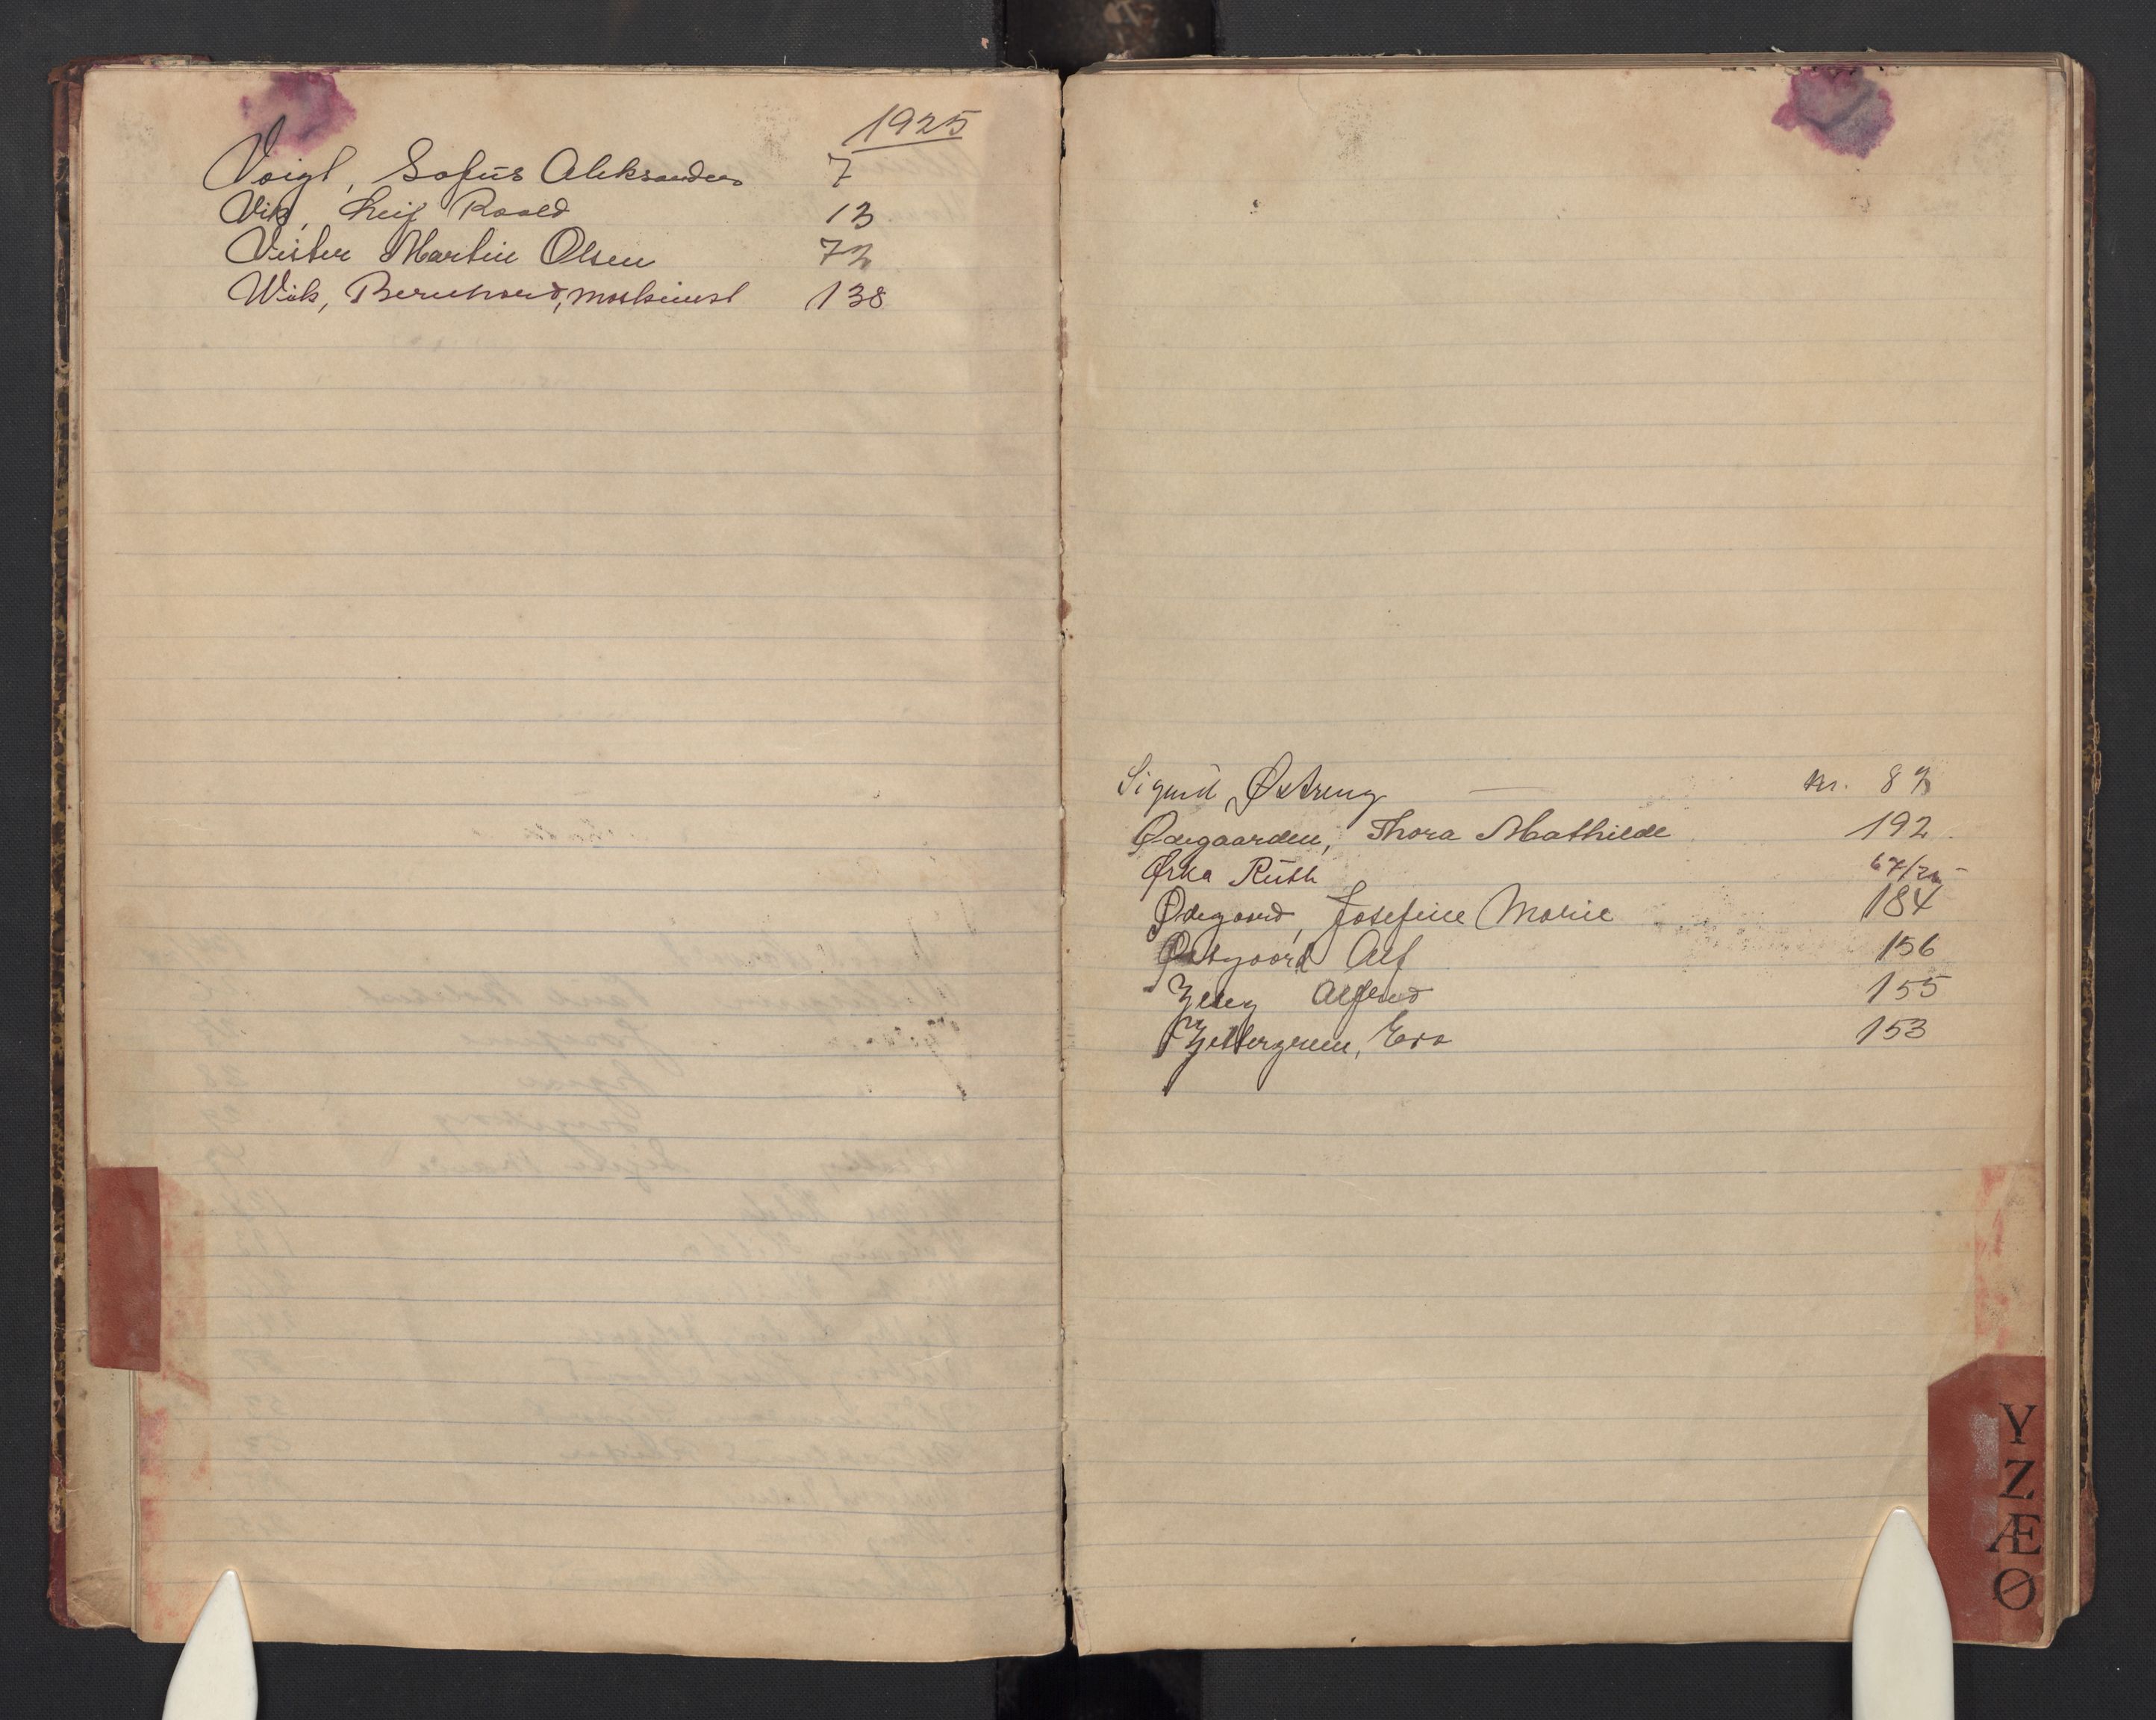 1925
Voigt, Sofus Aleksander 7
Vik, Leif Roald 13
Vister Martin Olsen 72
Wik, Bernhard, maskinist 138
Sigurd Østreng — nr. 83
Ødegaarden, Thora Mathilde 192
Ørka Ruth 67/
Ødegaard, Josefine Marie 184
Østgaard Alf 156
Alfred 155
Zettergreen, Eva 153
Y
Z
Æ
Ø